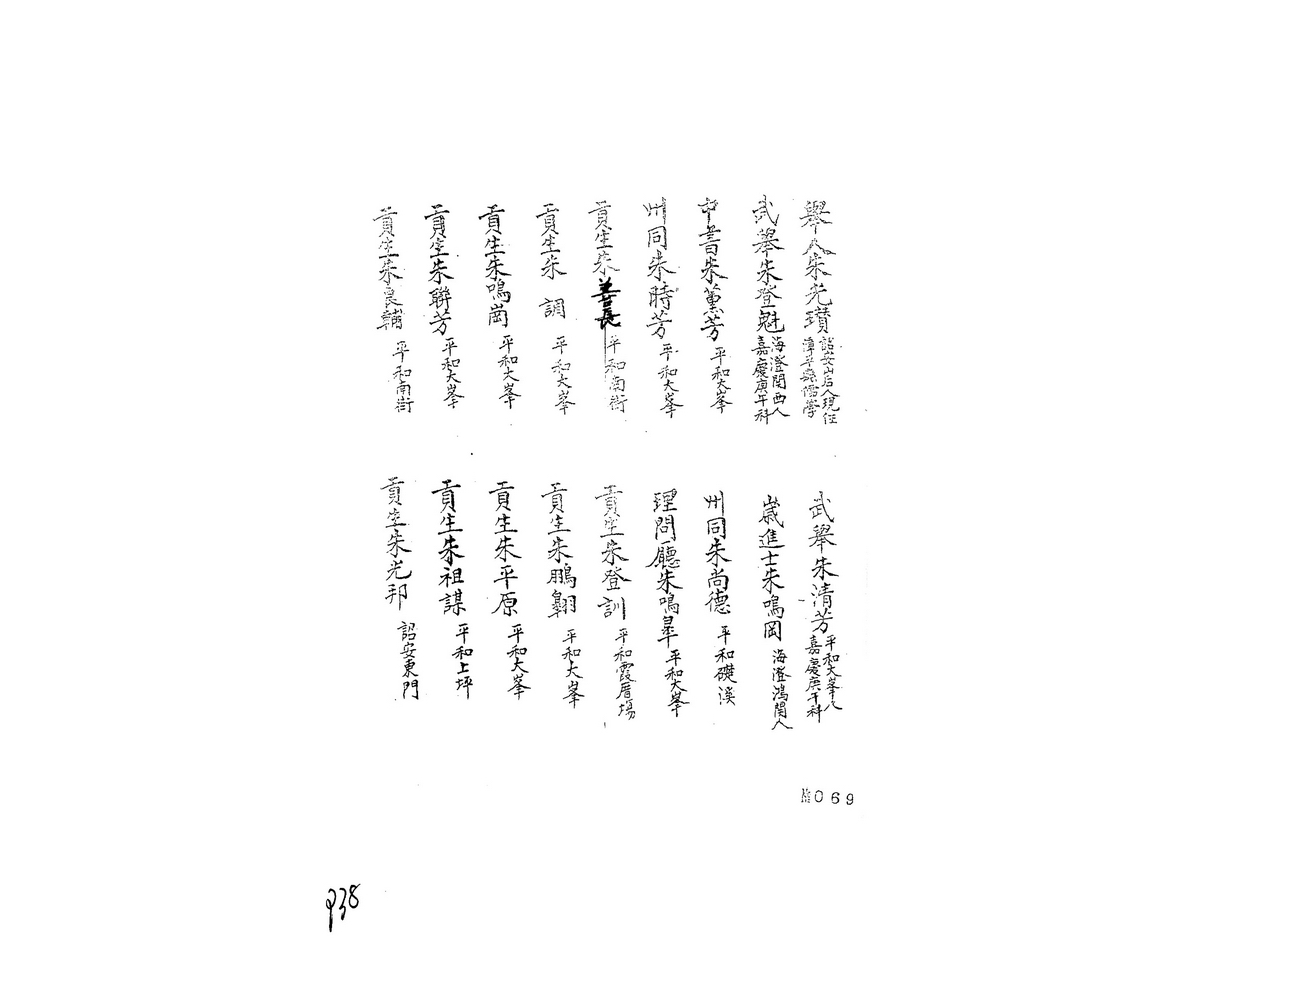 舉人朱光瓚 詔安山后人現任漳平縣儒學
武舉朱登魁 海澄関西人嘉慶庚午科
中書朱薰芳 平和大峯
州同朱時芳 平和大峯
貢生朱善長 平和南街
貢生朱調 平和大峯
貢生朱鳴崗 平和大峯
貢生朱聯芳 平和大峯
貢生朱良輔 平和南街
武舉朱清芳 平和大峯人嘉慶庚午科
歲進士朱鳴岡 海澄鴻関人
州同朱尚德 平和礎溪
理問廳朱鳴皋 平和大峯
貢生朱登訓 平和霞厝塲
貢生朱鵬翱 平和大峯
貢生朱平原 平和大峯
貢生朱祖謀 平和上坪
貢生朱光邦 詔安東門
№069
P38